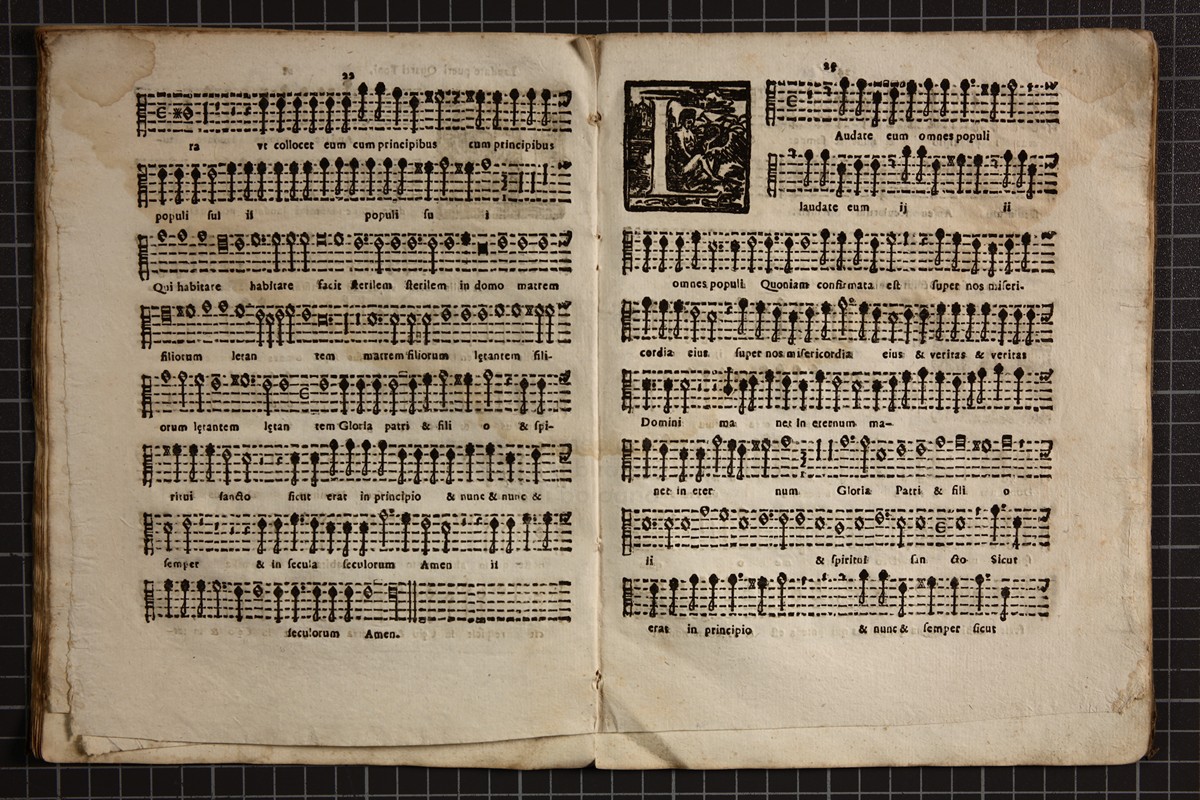 22
ra vt collocet eum cum principibus cum principibus
populi sui ii populi su i
Qui habitare habitare facit sterilem sterilem in domo matrem
filiorum letan tem matrem filiorum lętantem fili-
orum lętantem lętan tem Gloria patri & fili o & spi-
ritui sancto sicut erat in principio & nunc & nunc &
semper & in secula seculorum Amen ii
seculorum Amen.
25
L Audate eum omnes populi
laudate eum ij ii
omnes populi Quoniam confirmata est super nos miseri-
cordia eius super nos misericordia eius & veritas & veritas
Domini ma net in eternum ma-
net in eter num Gloria Patri & fili o
ii & spiritui san cto Sicut
erat in principio & nunc & semper sicut